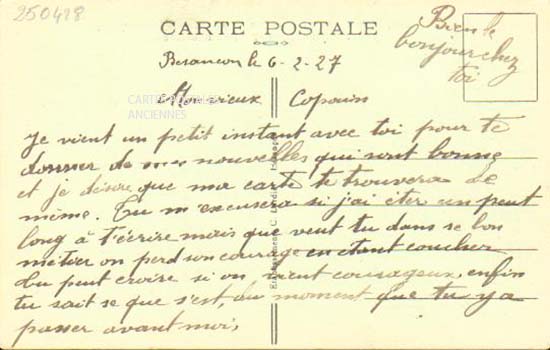 250418
CARTE POSTALE
Bien le
bonjour chez
toi
Besancon le 6-2-27
Mon vieux Copain
CARTES POSTALES
ANCIENNES
Je vient un petit instant avec toi pour te
donner de mes nouvelles qui sont bonne
et je désire que ma carte te trouvera de
même. Tu m'excusera si j'ai éter un peut
long à t'écrire mais que veut tu dans se bon
métier on perd son courage en étant coucher
tu peut croire si on vient courageux, enfin
tu sait se que s'est, du moment que tu y a
passer avant moi,
Etablissements C. Lardier